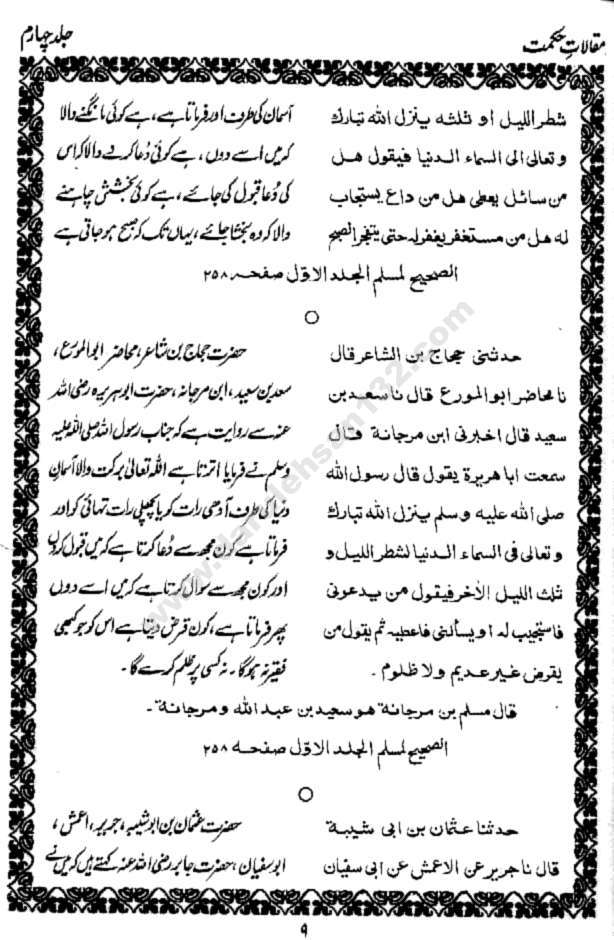 مقالاتِ حکمت
جلد چہارم
شطر الليل او ثلثه ينزل الله تبارك
و تعالى الى السماء الدنيا فيقول هل
من سائل يعطى هل من داع يستجاب
له هل من مستغفر يغفر له حتى ينفجر الصبح
آسمان کی طرف اور فرماتا ہے، ہے کوئی مانگنے والا
کہ میں اسے دوں، ہے کوئی دُعا کرنے والا کہ اس
کی دُعا قبول کی جائے، ہے کوئی بخشش چاہنے
والا کہ وہ بخشا جائے، یہاں تک کہ صبح ہو جاتی ہے
الصحيح لمسلم الجلد الاوّل صفحہ ۲۵۸
حدثنى حجاج بن الشاعر قال
نا محاضر ابو المورع قال نا سعد بن
سعيد قال اخبرنى ابن مرجانة قال
سمعت ابا هريرة يقول قال رسول الله
صلى الله عليه وسلم ينزل الله تبارك
و تعالى فى السماء الدنيا لشطر الليل و
ثلث الليل الأخر فيقول من يدعونى
فاستجيب له او يسألنى فاعطيه ثم يقول من
يقرض غير عديم ولا ظلوم ۔
حضرت حجاج بن شاعر، محاضر ابو المورع،
سعد بن سعید، ابن مرجانہ، حضرت ابو ہریرہ رضی اللہ
عنہ سے روایت ہے کہ جناب رسول اللہ صلی اللہ علیہ
وسلم نے فرمایا اترتا ہے اللہ تعالیٰ برکت والا آسمانِ
دنیا کی طرف آدھی رات کو یا پچھلی رات تہائی کو اور
فرماتا ہے کون مجھ سے دُعا کرتا ہے کہ میں قبول کروں
اور کون مجھ سے سوال کرتا ہے کہ میں اسے دوں
پھر فرماتا ہے، کون قرض دیتا ہے اس کو جو کبھی
فقیر نہ ہو گا۔ نہ کسی پر ظلم کرے گا۔
قال مسلم بن مرجانة هو سعيد بن عبد الله و مرجانة ۔
الصحيح لمسلم الجلد الاوّل صفحہ ۲۵۸
حدثنا عثمان بن ابى شيبة
قال نا جرير عن الاعمش عن ابى سفيان
حضرت عثمان بن ابو شیبہ، جریر، اعمش،
ابو سفیان، حضرت جابر رضی اللہ عنہ کہتے ہیں کہ میں نے
۹